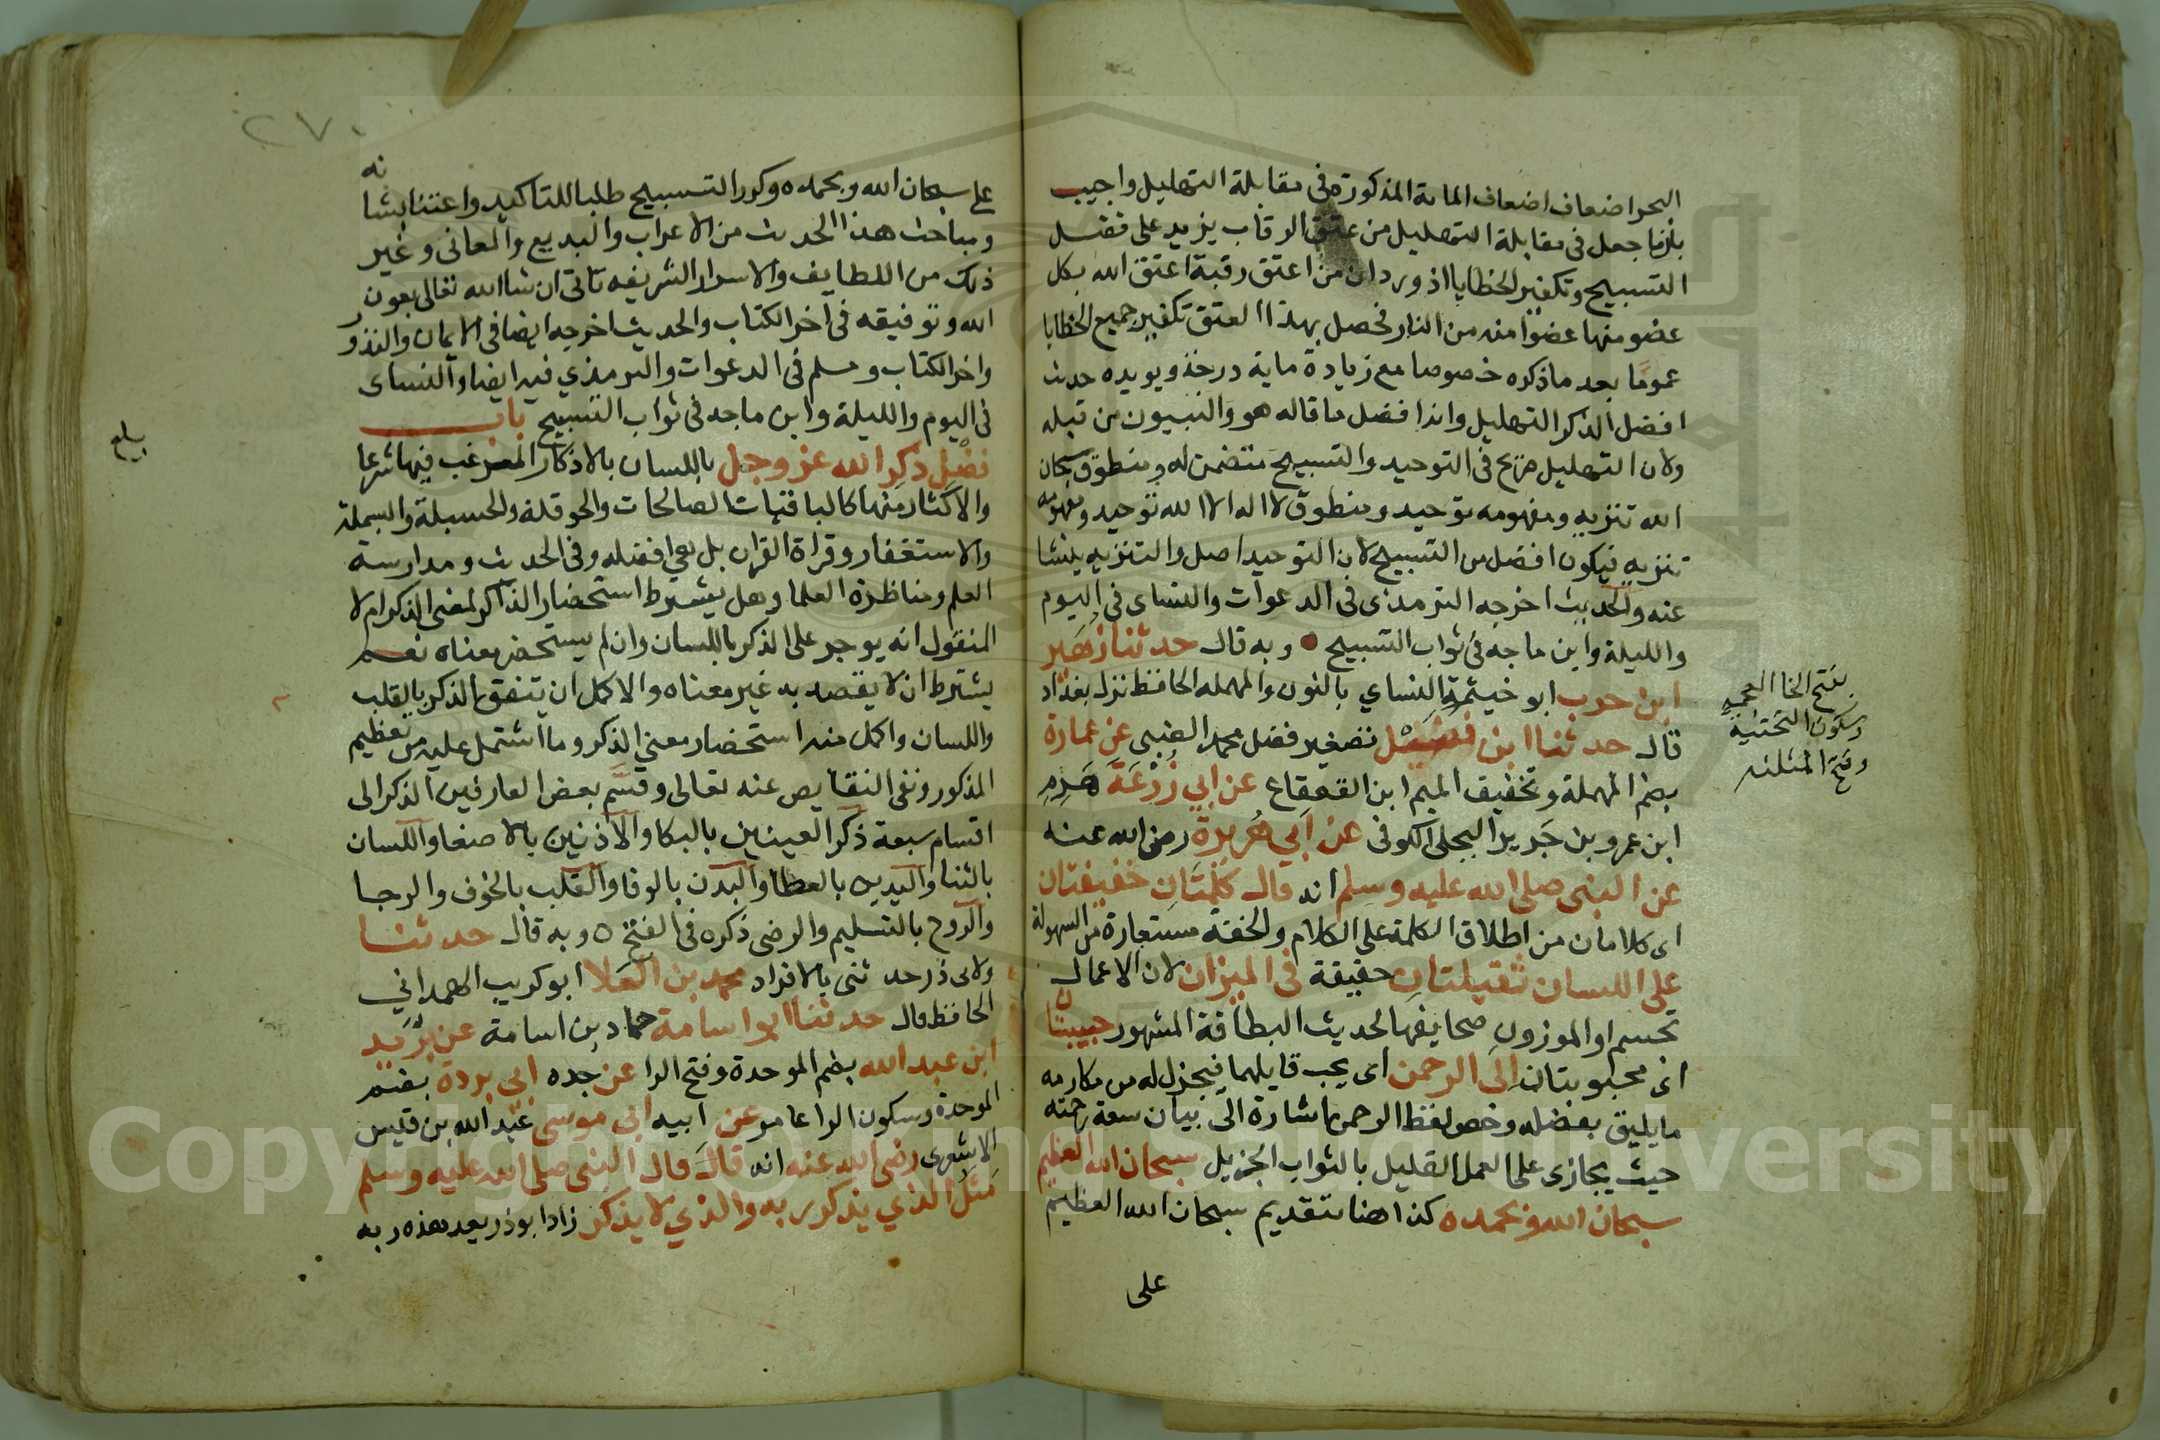 البحر اضعاف اضعاف الماية المذكورة في مقابلة التهليل واجيب
بان ما جعل في مقابلة التهليل من عتق الرقاب يزيد على فضل
التسبيح وتكفير الخطايا اذ ورد ان من اعتق رقبة اعتق الله بكل
عضو منها عضوا منه من النار فحصل بهذا العتق تكفير جميع الخطايا
عموما بعد ما ذكره خصوصا مع زيادة ماية درجة ويويده حديث
افضل الذكر التهليل وانه افضل ما قاله هو والنبيون من قبله
ولان التهليل صريح في التوحيد والتسبيح متضمن له ومنطوق سبحان
الله تنزيه ومفهومه توحيد ومنطوق لا اله الا الله توحيد ومفهومه
تنزيه فيكون افضل من التسبيح لان التوحيد اصل والتنزيه ينشا
عنه والحديث اخرجه الترمذي في الدعوات والنساى في اليوم
والليلة وابن ماجه في ثواب التسبيح وبه قال حدثنا زهير
ابن حرب ابو خيثمة النساي بالنون والمهملة الحافظ نزل بغداد
قال حدثنا ابن فضيل تصغير فضل محمد الضبي عن عمارة
بضم المهملة وتخفيف الميم ابن القعقاع عن ابي زرعة هرم
ابن عمرو بن جرير البجلي الكوفي عن ابي هريرة رضى الله عنه
عن النبي صلى الله عليه وسلم انه قال كلمتان خفيفتان
اى كلامان من اطلاق الكلمة على الكلام والخفة مستعارة من السهولة
على اللسان ثقيلتان حقيقة في الميزان لان الاعمال
تجسم او الموزون صحايفها لحديث البطاقة المشهور حبيبتان
اى محبوبتان الى الرحمن اى يحب قايلهما فيجزل له من مكارمه
ما يليق بفضله وخص لفظ الرحمن اشارة الى بيان سعة رحمته
حيث يجازى على العمل القليل بالثواب الجزيل سبحان الله العظيم
سبحان الله وبحمده كذا هنا بتقديم سبحان الله العظيم
على
بفتح الخا المعجمة
وسكون التحتية
وفتح المثلثة
٢٧٠
على سبحان الله وبحمده وكرر التسبيح طلبا للتاكيد واعتنا بشانه
ومباحث هذا الحديث من الاعراب والبديع والمعانى وغير
ذلك من اللطايف والاسرار الشريفه تاتى ان شا الله تعالى بعون
الله وتوفيقه في اخر الكتاب والحديث اخرجه ايضا في الايمان والنذور
واخر الكتاب ومسلم في الدعوات والترمذي فيه ايضا والنساى
في اليوم والليلة وابن ماجه في ثواب التسبيح باب
فضل ذكر الله عز وجل باللسان بالاذكار المرغب فيها شرعا
والاكثار منها كالباقيات الصالحات والحوقلة والحسبلة والبسملة
والاستغفار وقراة القران بل هي افضله وفي الحديث ومدارسة
العلم ومناظرة العلما وهل يشترط استحضار الذاكر لمعنى الذكر ام لا
المنقول انه يوجر على الذكر باللسان وان لم يستحضر معناه نعم
يشترط ان لا يقصد به غير معناه والاكمل ان يتفق الذكر بالقلب
واللسان واكمل منه استحضار معنى الذكر وما اشتمل عليه من تعظيم
المذكور ونفى النقايص عنه تعالى وقسم بعض العارفين الذكر الى
اقسام سبعة ذكر العينين بالبكا والاذنين بالاصغا واللسان
بالثنا واليدين بالعطا والبدن بالوفا والقلب بالخوف والرجا
والروح بالتسليم والرضى ذكره في الفتح ٥ وبه قال حدثنا
ولابى ذر حدثنى بالافراد محمد بن العلا ابو كريب الهمداني
الحافظ قال حدثنا ابو اسامة حماد بن اسامة عن بريد
ابن عبد الله بضم الموحدة وفتح الرا عن جده ابي بردة بضم
الموحدة وسكون الرا عامر عن ابيه ابي موسى عبد الله بن قيس
الاشعرى رضى الله عنه انه قال قال النبي صلى الله عليه وسلم
مثل الذي يذكر ربه والذي لا يذكر زاد ابو ذر بعد هذه ربه